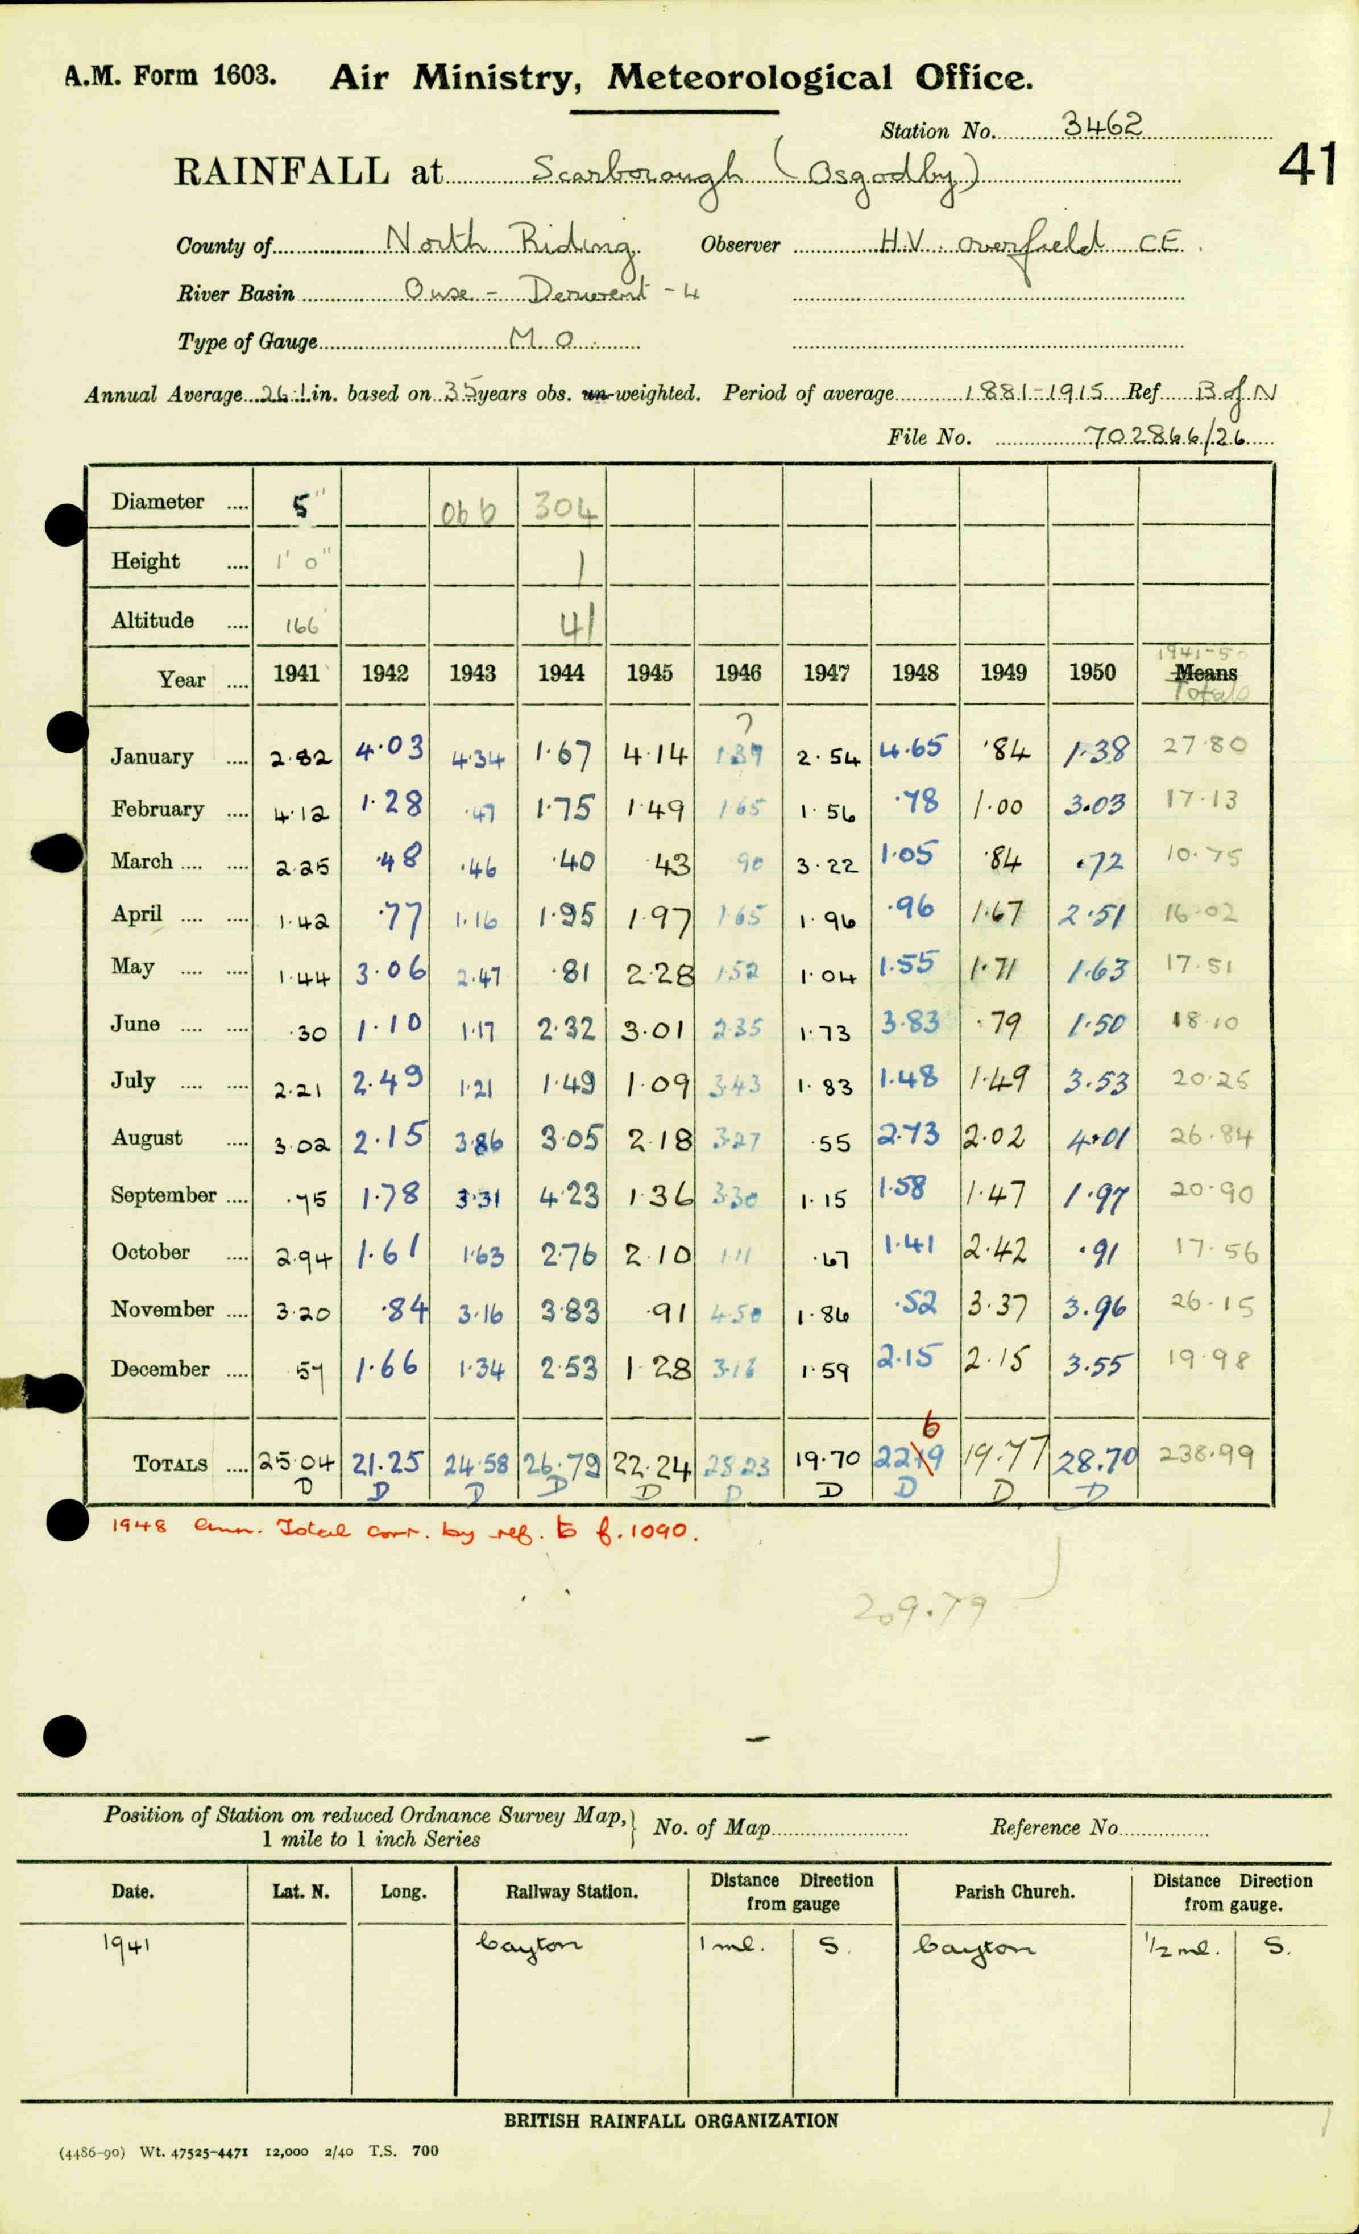 A.M. Form 1603. Air Ministry, Meteorological Office.
Station No. 3462
41
RAINFALL at Scarborough (Osgodby)
County of North Riding Observer H.V. Overfield CE.
River Basin Ouse - Derwent - 4
Type of Gauge M O
Annual Average 26.1 in. based on 35 years obs. un-weighted. Period of average 1881-1915 Ref B of N
File No. 702866/26
Diameter .... 5" 304
Height .... 1' 0" 1
Altitude .... 166 41
1941-50
Year .... 1941 1942 1943 1944 1945 1946 1947 1948 1949 1950 Means
Totals
?
January .... 2.82 4.03 4.34 1.67 4.14 1.39 2.54 4.65 .84 1.38 27.80
February .... 4.12 1.28 .47 1.75 1.49 1.65 1.56 .78 1.00 3.03 17.13
March .... .... 2.25 .48 .46 .40 .43 .90 3.22 1.05 .84 .72 10.75
April .... .... 1.42 .77 1.16 1.95 1.97 1.65 1.96 .96 1.67 2.51 16.02
May .... .... 1.44 3.06 2.47 .81 2.28 1.52 1.04 1.55 1.71 1.63 17.51
June .... .... .30 1.10 1.17 2.32 3.01 2.35 1.73 3.83 .79 1.50 18.10
July .... .... 2.21 2.49 1.21 1.49 1.09 3.43 1.83 1.48 1.49 3.53 20.25
August .... 3.02 2.15 3.86 3.05 2.18 3.27 .55 2.73 2.02 4.01 26.84
September .... .75 1.78 3.31 4.23 1.36 3.30 1.15 1.58 1.47 1.97 20.90
October .... 2.94 1.61 1.63 2.76 2.10 1.11 .67 1.41 2.42 .91 17.56
November .... 3.20 .84 3.16 3.83 .91 4.50 1.86 .52 3.37 3.96 26.15
December .... .57 1.66 1.34 2.53 1.28 3.16 1.59 2.15 2.15 3.55 19.98
6
TOTALS .... 25.04 21.25 24.58 26.79 22.24 28.23 19.70 22.19 19.77 28.70 238.99
D D D D D D D D D D
1948 Ann. Total corr. by ref. to f.1090.
209.79
Position of Station on reduced Ordnance Survey Map, No. of Map Reference No
1 mile to 1 inch Series
Date. Lat. N. Long. Railway Station. Distance from gauge Direction Parish Church. Distance from gauge. Direction
1941 Cayton 1 ml. S. Cayton 1/2 ml. S.
BRITISH RAINFALL ORGANIZATION
(4486-90) Wt. 47525-4471 12,000 2/40 T.S. 700